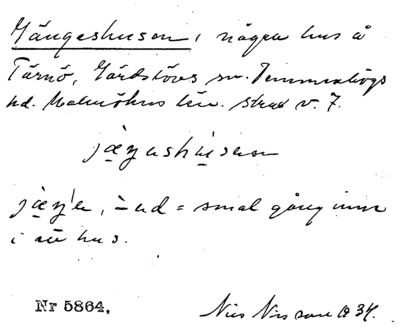 Gängeshusen, några hus å
Tärnö, Gärdslövs sn. Vemmenhögs
hd. Malmöhus län. strax v. 7.
jäŋashusen
jäŋ'e, -ad = smal gång inne
i ett hus.
Nr 5864.
Nils Nilsson 1934.